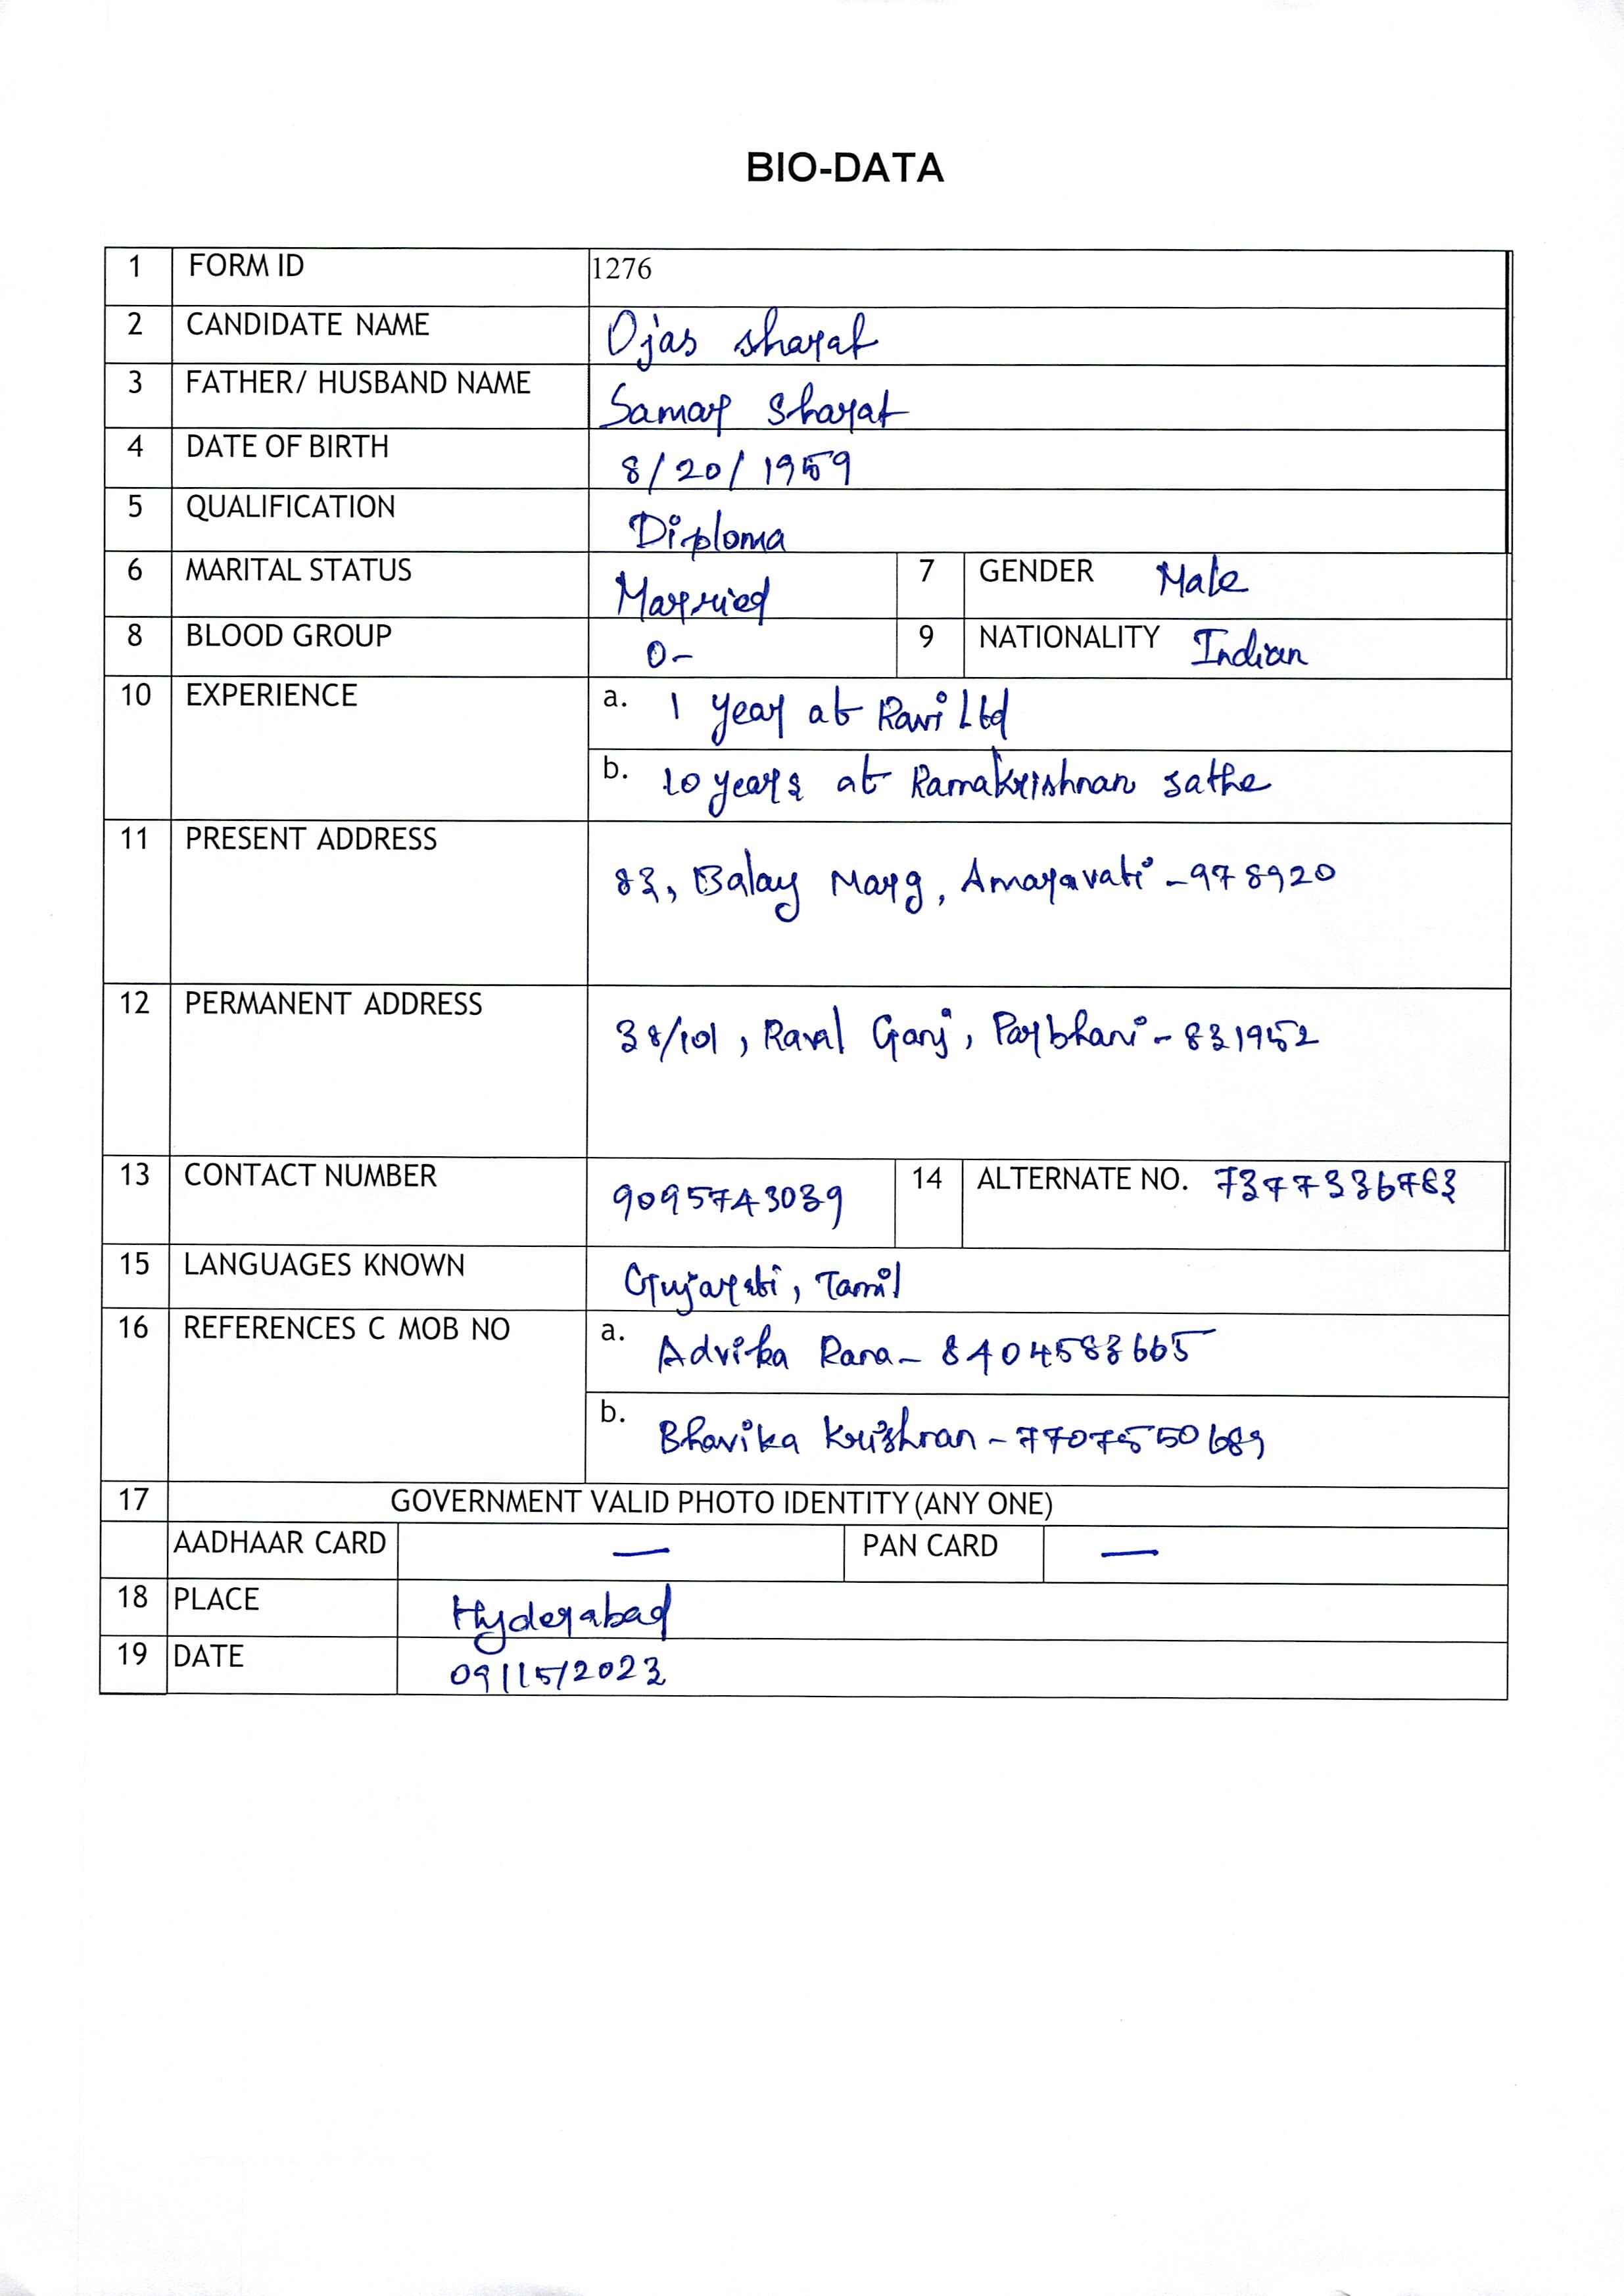 BIO-DATA
1 FORM ID 1276
2 CANDIDATE NAME Ojas Sharaf
3 FATHER/ HUSBAND NAME Samar Sharaf
4 DATE OF BIRTH 8/20/1959
5 QUALIFICATION Diploma
6 MARITAL STATUS Married 7 GENDER Male
8 BLOOD GROUP O- 9 NATIONALITY Indian
10 EXPERIENCE a. 1 year at Ravi Ltd
b. 10 years at Ramakrishnan Sathe
11 PRESENT ADDRESS
83, Balay Marg, Amaravati - 978920
12 PERMANENT ADDRESS
38/101, Raval Ganj, Parbhani - 831952
13 CONTACT NUMBER 9095743039 14 ALTERNATE NO. 7377336783
15 LANGUAGES KNOWN Gujarati, Tamil
16 REFERENCES C MOB NO a. Advika Rana - 8404583665
b. Bhavika Krishnan - 7707550689
17 GOVERNMENT VALID PHOTO IDENTITY (ANY ONE)
AADHAAR CARD — PAN CARD —
18 PLACE Hyderabad
19 DATE 09/15/2023